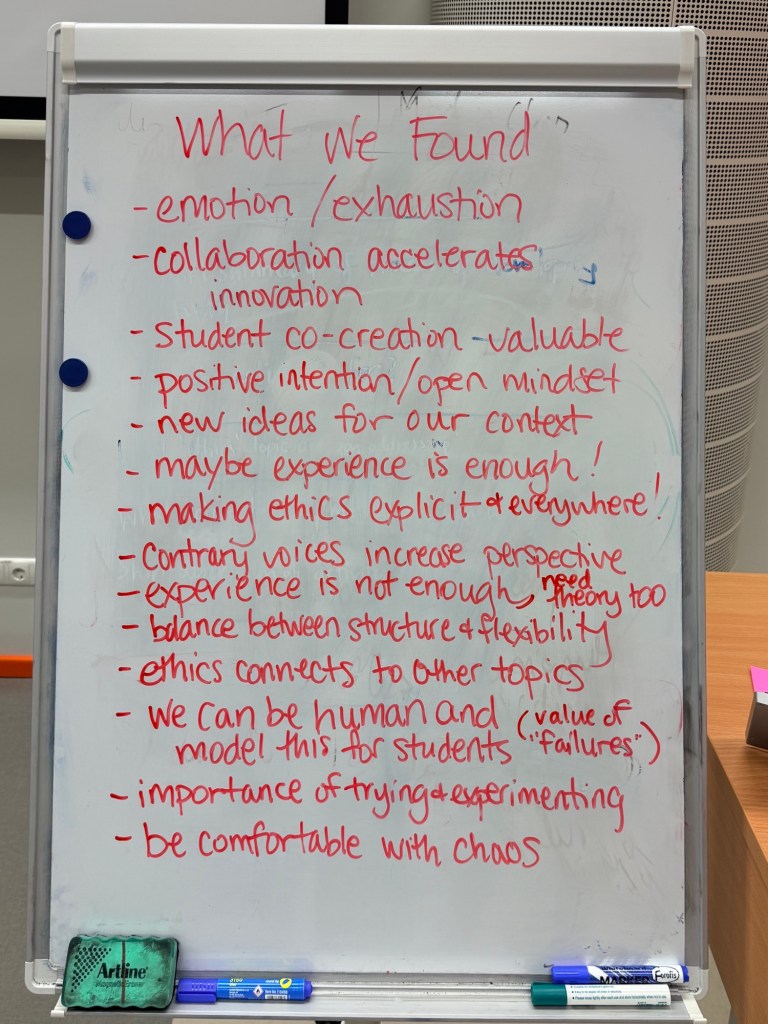 What We Found
- emotion / exhaustion
- collaboration accelerates
innovation
- student co-creation - valuable
- positive intention/open mindset
- new ideas for our context
- maybe experience is enough!
- making ethics explicit & everywhere!
- contrary voices increase perspective
- experience is not enough, need theory too
- balance between structure & flexibility
- ethics connects to other topics
- we can be human and (value of
model this for students "failures")
- importance of trying & experimenting
- be comfortable with chaos
Artline
Magnetic Eraser
MARKER